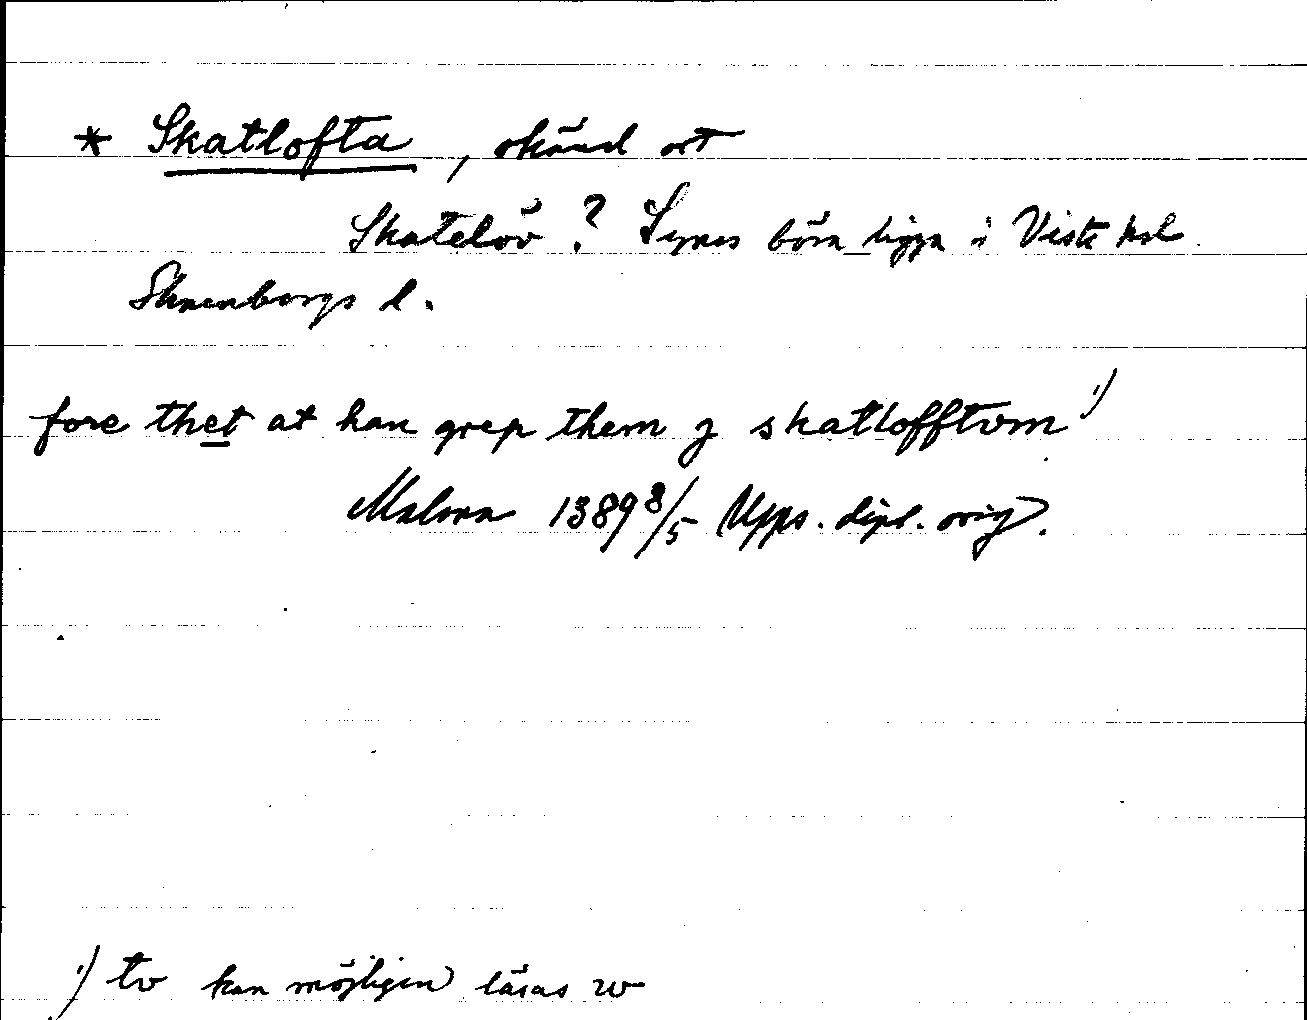 * Skatlofta, okänd ort
Skatelöv ? Synes böra ligga i Viste hd
Skaraborgs l.
fore thet at han grep them j skatlofftvm 1)
Malma 1389 8/5 Upps. dipl. orig.
1) tv kan möjligen läsas w